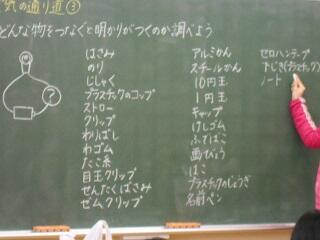 気の通り道③
どんな物をつなぐと明かりがつくのか調べよう
?
はさみ
のり
じしゃく
プラスチックのコップ
ストロー
クリップ
わりばし
わゴム
たこ糸
目玉クリップ
せんたくばさみ
ゼムクリップ
アルミかん
スチールかん
10円玉
1円玉
キャップ
けしゴム
ふでばこ
画びょう
はこ
プラスチックのじょうぎ
名前ペン
セロハンテープ
下じき(プラスチック)
ノート